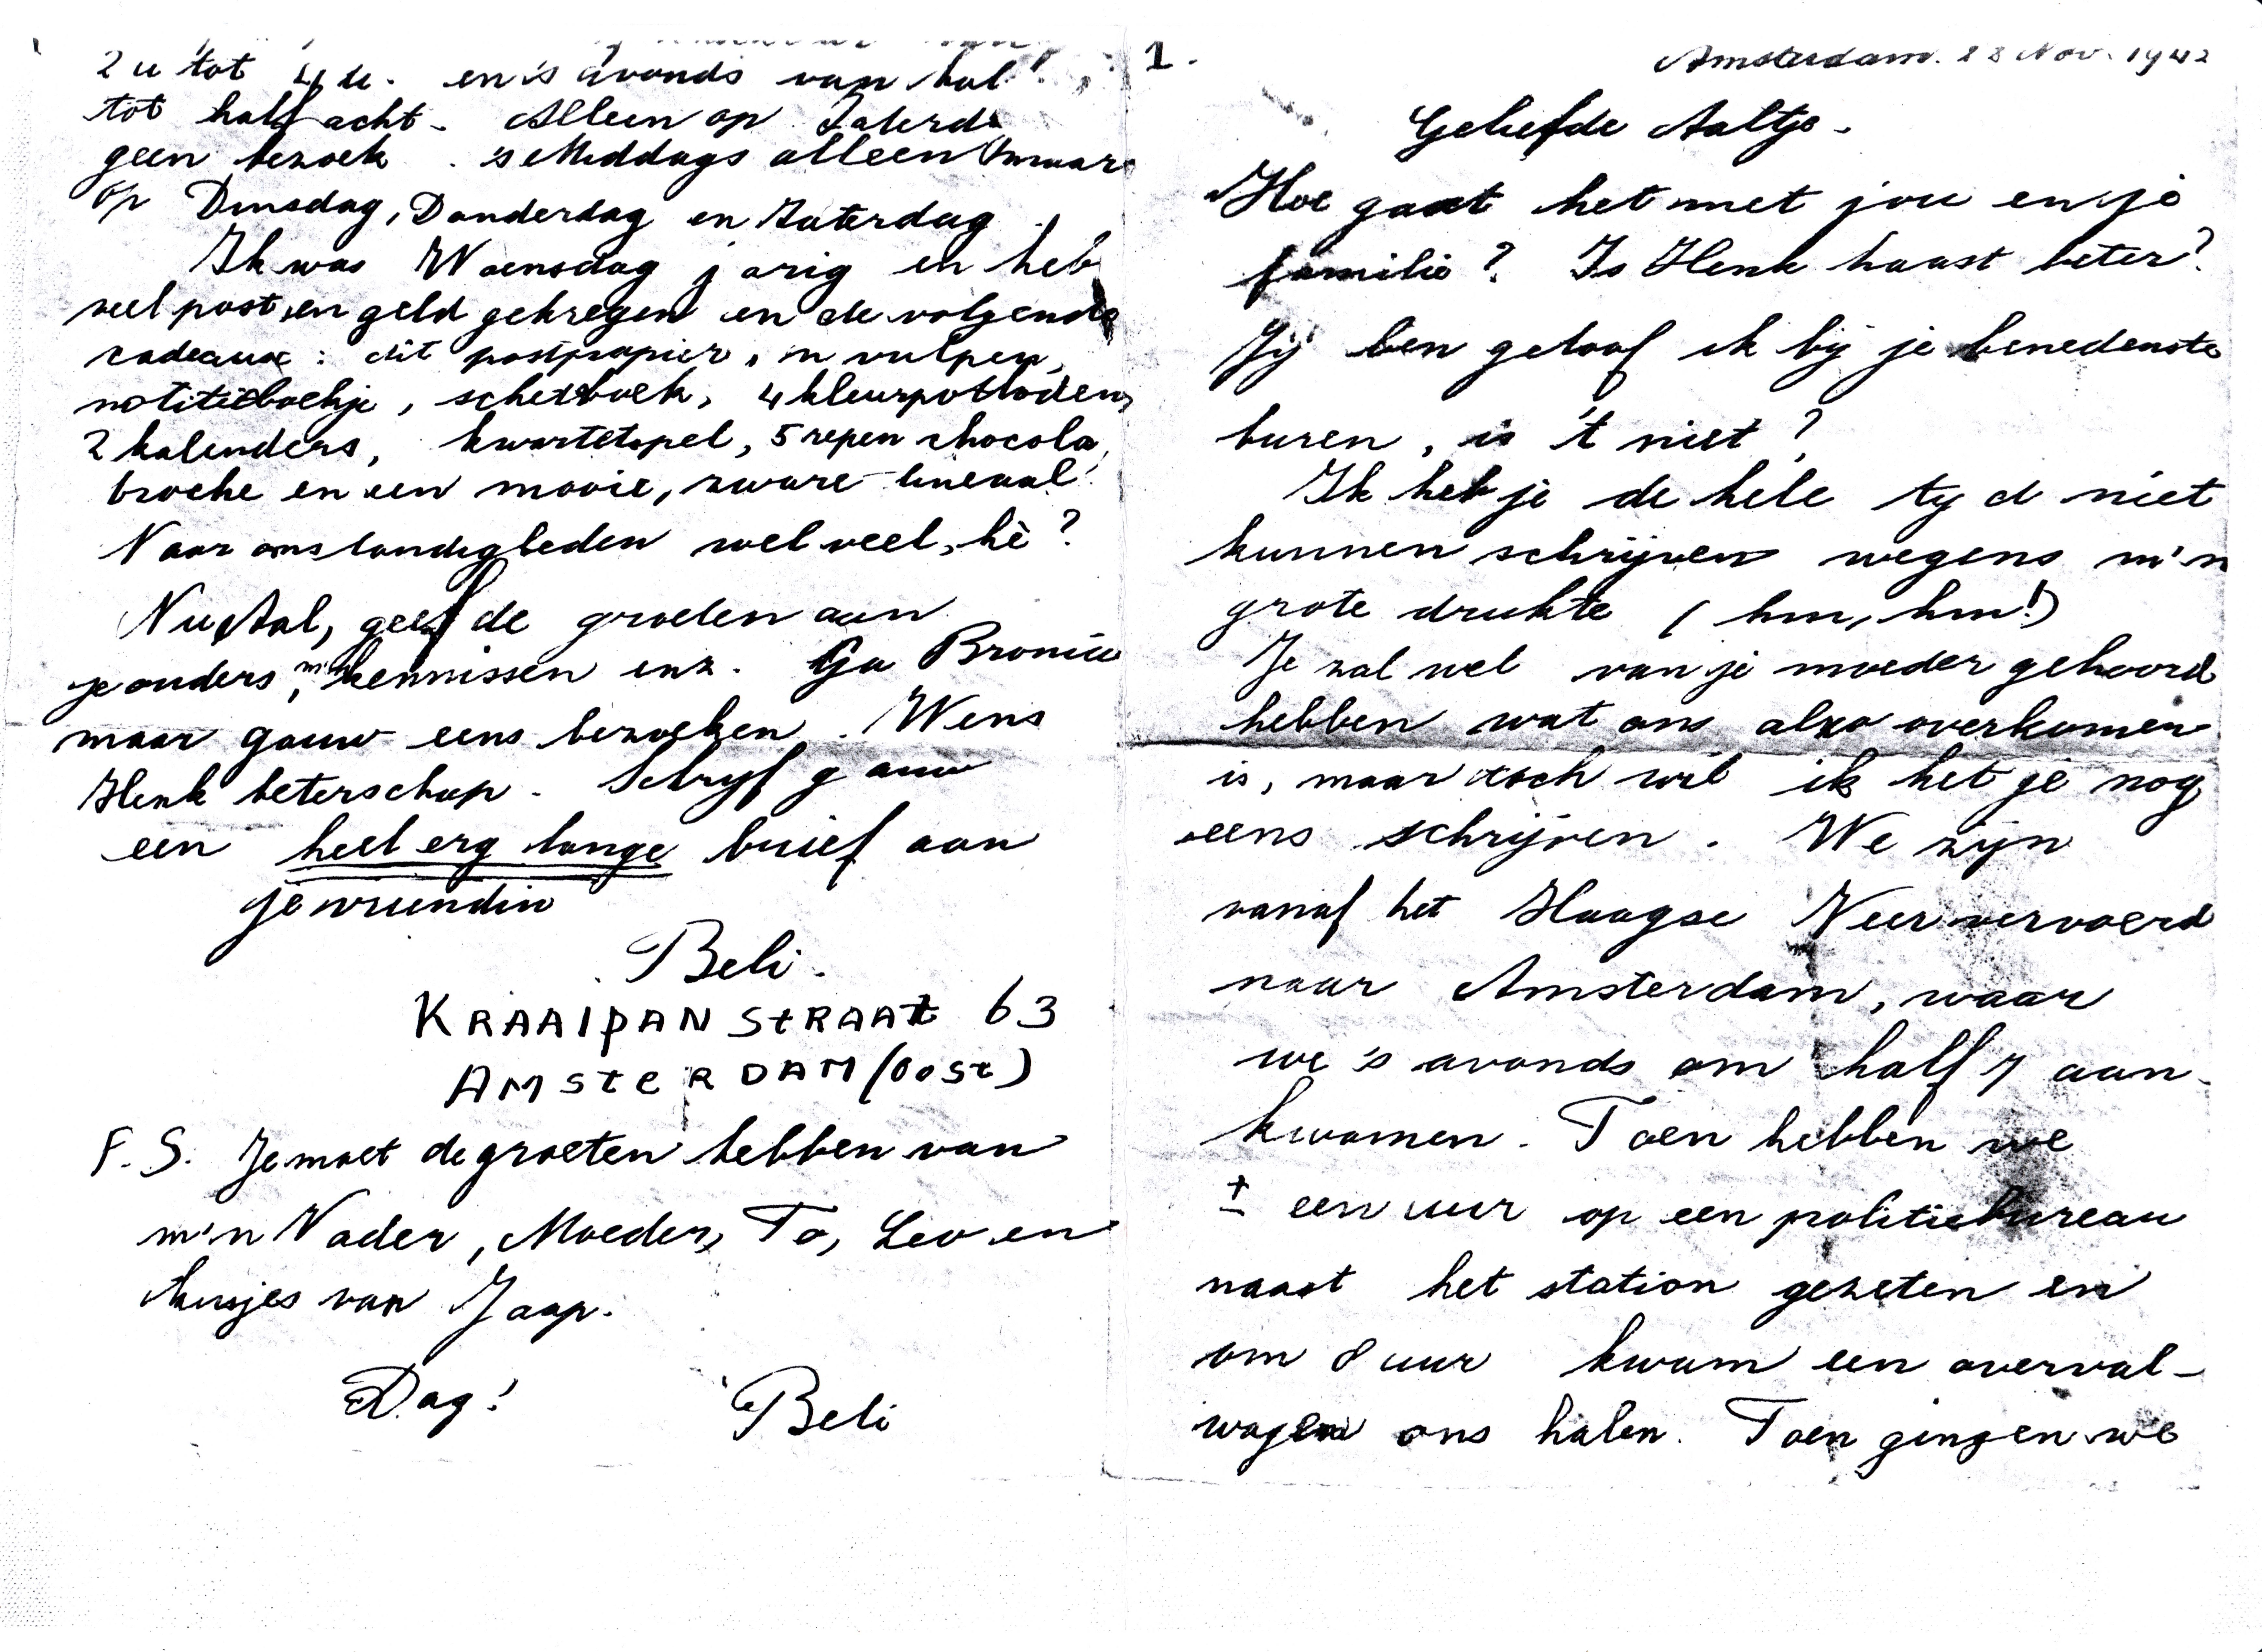 1.
Amsterdam. 28 Nov. 1942
Geliefde Aaltje.
Hoe gaat het met jou en je
familie? Is Henk haast beter?
Jij ben geloof ik bij je benedenste
buren, is 't niet?
Ik heb je de hele tijd niet
kunnen schrijven wegens m'n
grote drukte (hm, hm!)
Je zal wel van je moeder gehoord
hebben wat ons alzo overkomen
is, maar toch wil ik het je nog
eens schrijven. We zijn
vanaf het Haagse Veer vervoerd
naar Amsterdam, waar
we 's avonds om half 7 aan-
kwamen. Toen hebben we
± een uur op een politiebureau
naast het station gezeten en
om 8 uur kwam een overval-
wagen ons halen. Toen gingen we
2 u tot 4 u. en 's avonds van hal
tot half acht. Alleen op Zaterd
geen bezoek. 's Middags alleen maar
op Dinsdag, Donderdag en Zaterdag.
Ik was Woensdag jarig en heb
veel post en geld gekregen en de volgende
cadeaux: dit postpapier, 'n vulpen,
notitieboekje, schetsboek, 4 kleurpotloden,
2 kalenders, kwartetspel, 5 repen chocola,
broche en een mooie, zware lineaal!
Naar omstandigheden wel veel, hè?
Nu Aal, geef de groeten aan
je ouders, m'n kennissen enz. Ga Bronia
maar gauw eens bezoeken. Wens
Henk beterschap. Schrijf gauw
een heel erg lange brief aan
je vriendin
Beli.
KRAAIPANSTRAAT 63
AMSTERDAM (OOST)
P.S. Je moet de groeten hebben van
m'n Vader, Moeder, To, Leo en
kusjes van Jaap.
Dag! Beli